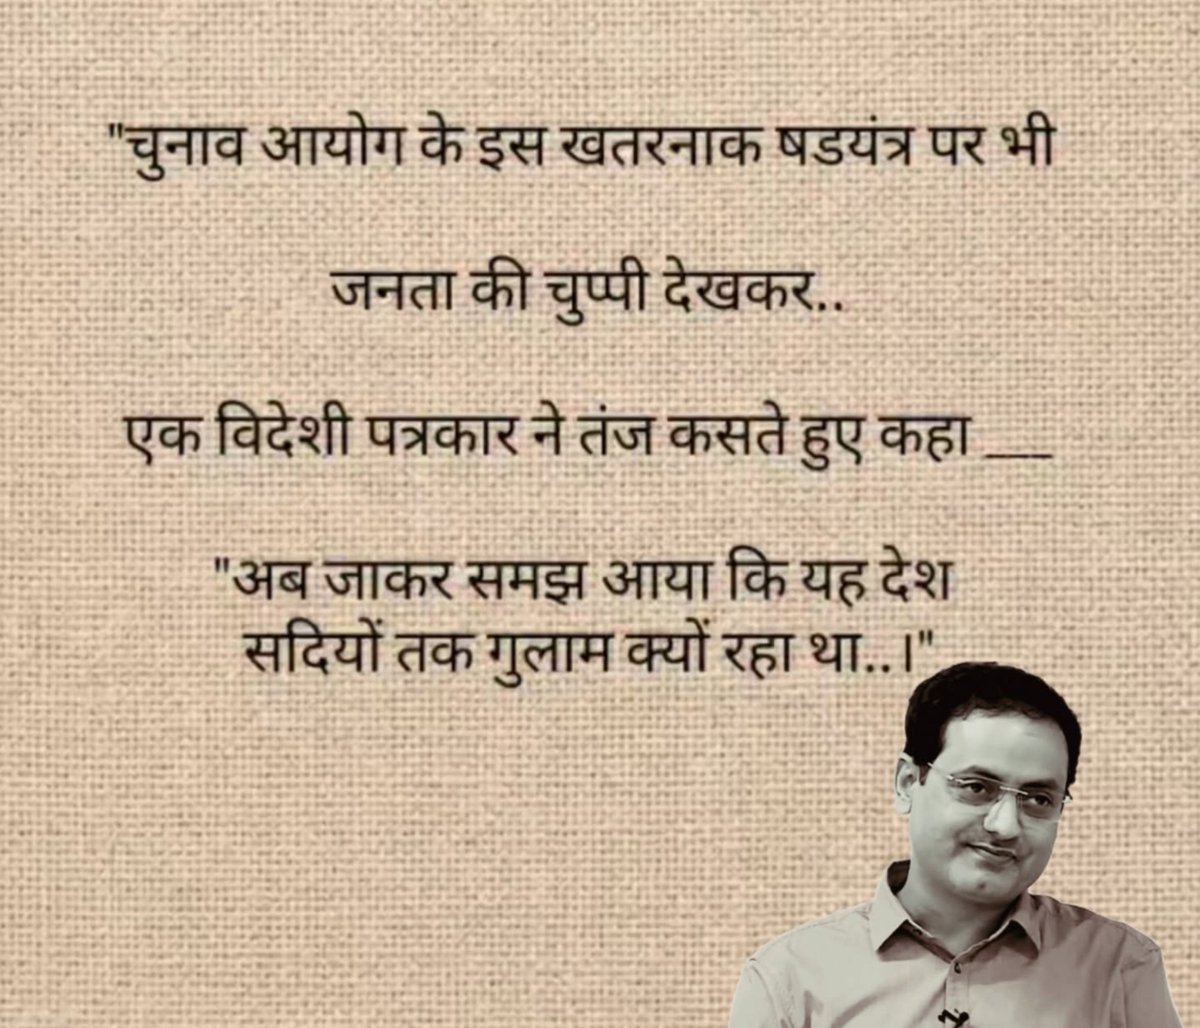 "चुनाव आयोग के इस खतरनाक षडयंत्र पर भी
जनता की चुप्पी देखकर..
एक विदेशी पत्रकार ने तंज कसते हुए कहा __
"अब जाकर समझ आया कि यह देश
सदियों तक गुलाम क्यों रहा था..।"